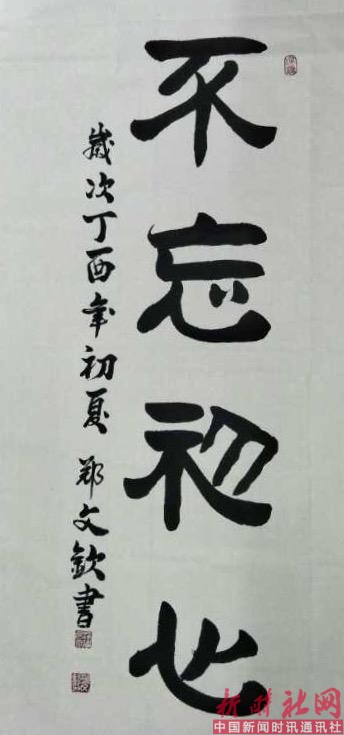 不忘初心
歲次丁酉年初夏 鄭文欽書
新時社网
中国新闻时讯通讯社